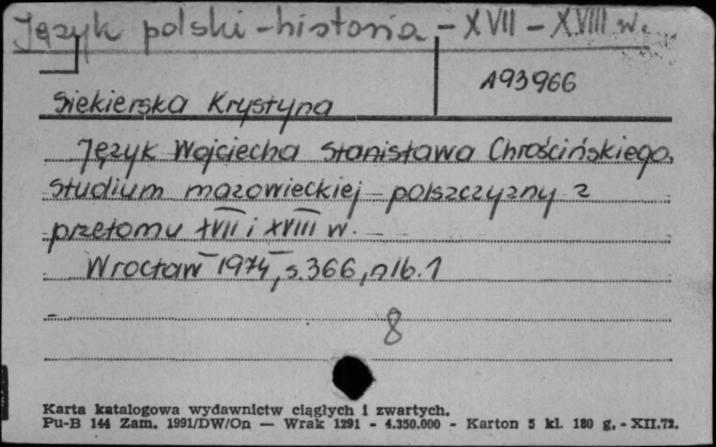 Język polski - historia - XVII - XVIII w.
A93966
Siekierska Krystyna
Język Wojciecha Stanisława Chrościńskiego.
Studium mazowieckiej polszczyzny z
przełomu XVII i XVIII w.
Wrocław 1974, s. 366, nlb. 1
8
Karta katalogowa wydawnictw ciągłych i zwartych.
Pu-B 144 Zam. 1991/DW/On — Wrak 1291 - 4.350.000 - Karton 5 kl. 180 g. - XII.72.